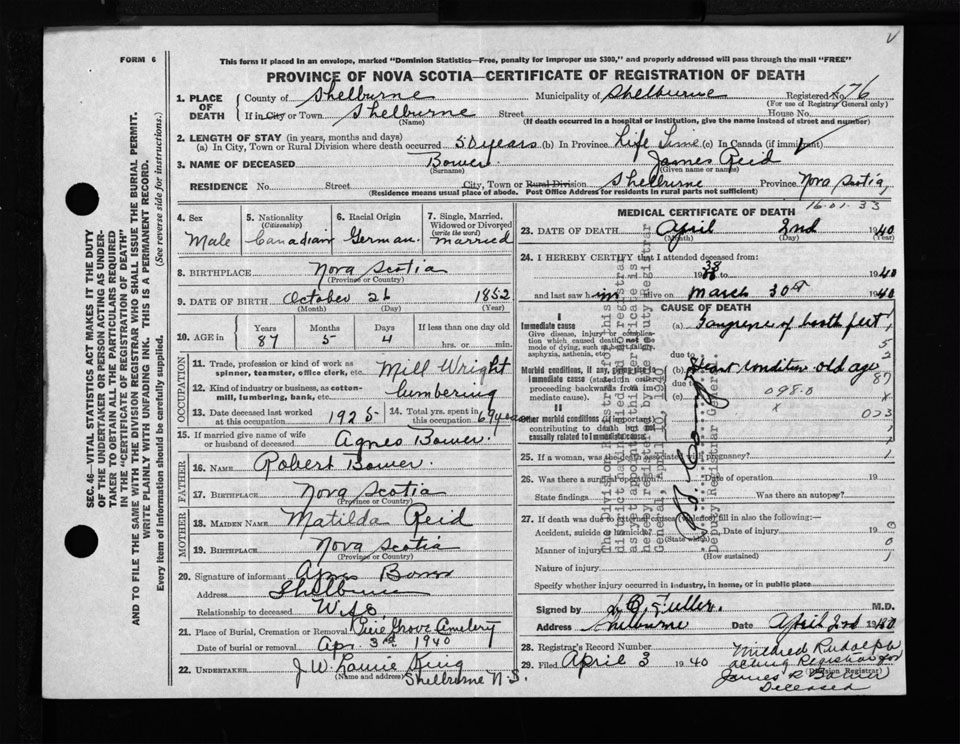 FORM 6
This form if placed in an envelope, marked "Dominion Statistics—Free, penalty for improper use $300," and properly addressed will pass through the mail "FREE"
PROVINCE OF NOVA SCOTIA—CERTIFICATE OF REGISTRATION OF DEATH
1. PLACE OF DEATH { County of Shelburne Municipality of Shelburne Registered No. 176
(For use of Registrar General only)
If in City or Town Shelburne Street House No.
(Name) (If death occurred in a hospital or institution, give the name instead of street and number)
2. LENGTH OF STAY (in years, months and days)
(a) In City, Town or Rural Division where death occurred 50 years (b) In Province Life Time (c) In Canada (if immigrant)
3. NAME OF DECEASED Bower James Reid
(Surname) (Given name or names)
RESIDENCE No. Street City, Town or Rural Division Shelburne Province Nova Scotia
(Residence means usual place of abode. Post Office Address for residents in rural parts not sufficient)
16-01-33
4. Sex Male
5. Nationality (Citizenship) Canadian
6. Racial Origin German
7. Single, Married, Widowed or Divorced (write the word) married
8. BIRTHPLACE Nova Scotia
(Province or Country)
9. DATE OF BIRTH October 26 1852
(Month) (Day) (Year)
10. AGE in Years 87 Months 5 Days 4 If less than one day old hrs. or min.
OCCUPATION
11. Trade, profession or kind of work as spinner, teamster, office clerk, etc. Mill Wright
12. Kind of industry or business, as cotton-mill, lumbering, bank, etc. lumbering
13. Date deceased last worked at this occupation 1925
14. Total yrs. spent in this occupation 67 years
15. If married give name of wife or husband of deceased Agnes Bower
FATHER
16. NAME Robert Bower
17. BIRTHPLACE Nova Scotia
(Province or Country)
MOTHER
18. MAIDEN NAME Matilda Reid
19. BIRTHPLACE Nova Scotia
(Province or Country)
20. Signature of informant Agnes Bower
Address Shelburne
Relationship to deceased Wife
21. Place of Burial, Cremation or Removal Pine Grove Cemetery
Date of burial or removal Apr. 3rd 1940
22. UNDERTAKER J. W. Laurie King
(Name and address) Shelburne N.S.
MEDICAL CERTIFICATE OF DEATH
23. DATE OF DEATH April 2nd 1940
(Month) (Day) (Year)
24. I HEREBY CERTIFY that I attended deceased from:
1938 to 1940
and last saw him alive on March 30th 1940
CAUSE OF DEATH
I
Immediate cause (a) Gangrene of both feet
Give disease, injury or complication which caused death, not the mode of dying, such as heart failure, asphyxia, asthenia, etc.
due to
Morbid conditions, if any, giving rise to immediate cause (stated in order proceeding backwards from immediate cause). (b) Heart condition old age 87
due to
(c) 098-0
II
Other morbid conditions (if important) contributing to death but not causally related to immediate cause.
25. If a woman, was the death associated with pregnancy?
26. Was there a surgical operation? Date of operation 19
State findings Was there an autopsy?
27. If death was due to external causes (violence) fill in also the following:—
Accident, suicide or homicide? Date of injury 19
(State which)
Manner of injury
(How sustained)
Nature of injury
Specify whether injury occurred in industry, in home, or in public place
Signed by L. B. Fuller M.D.
Address Shelburne Date April 2nd 1940
28. Registrar's Record Number
29. Filed April 3 1940 Mildred Rudolph
acting Registrar for
(Division Registrar)
James R Bower
Deceased
The Division Registrar for this
district having died a registrar
as yet appointed within this certificate is
hereby registered by the Deputy Registrar
General, April 10, 1940
Deputy Registrar General.
SEC. 46—VITAL STATISTICS ACT MAKES IT THE DUTY
OF THE UNDERTAKER OR PERSON ACTING AS UNDER-
TAKER TO OBTAIN ALL THE PARTICULARS REQUIRED
IN THE "CERTIFICATE OF REGISTRATION OF DEATH"
AND TO FILE THE SAME WITH THE DIVISION REGISTRAR WHO SHALL ISSUE THE BURIAL PERMIT.
WRITE PLAINLY WITH UNFADING INK. THIS IS A PERMANENT RECORD.
Every item of information should be carefully supplied. (See reverse side for instructions.)